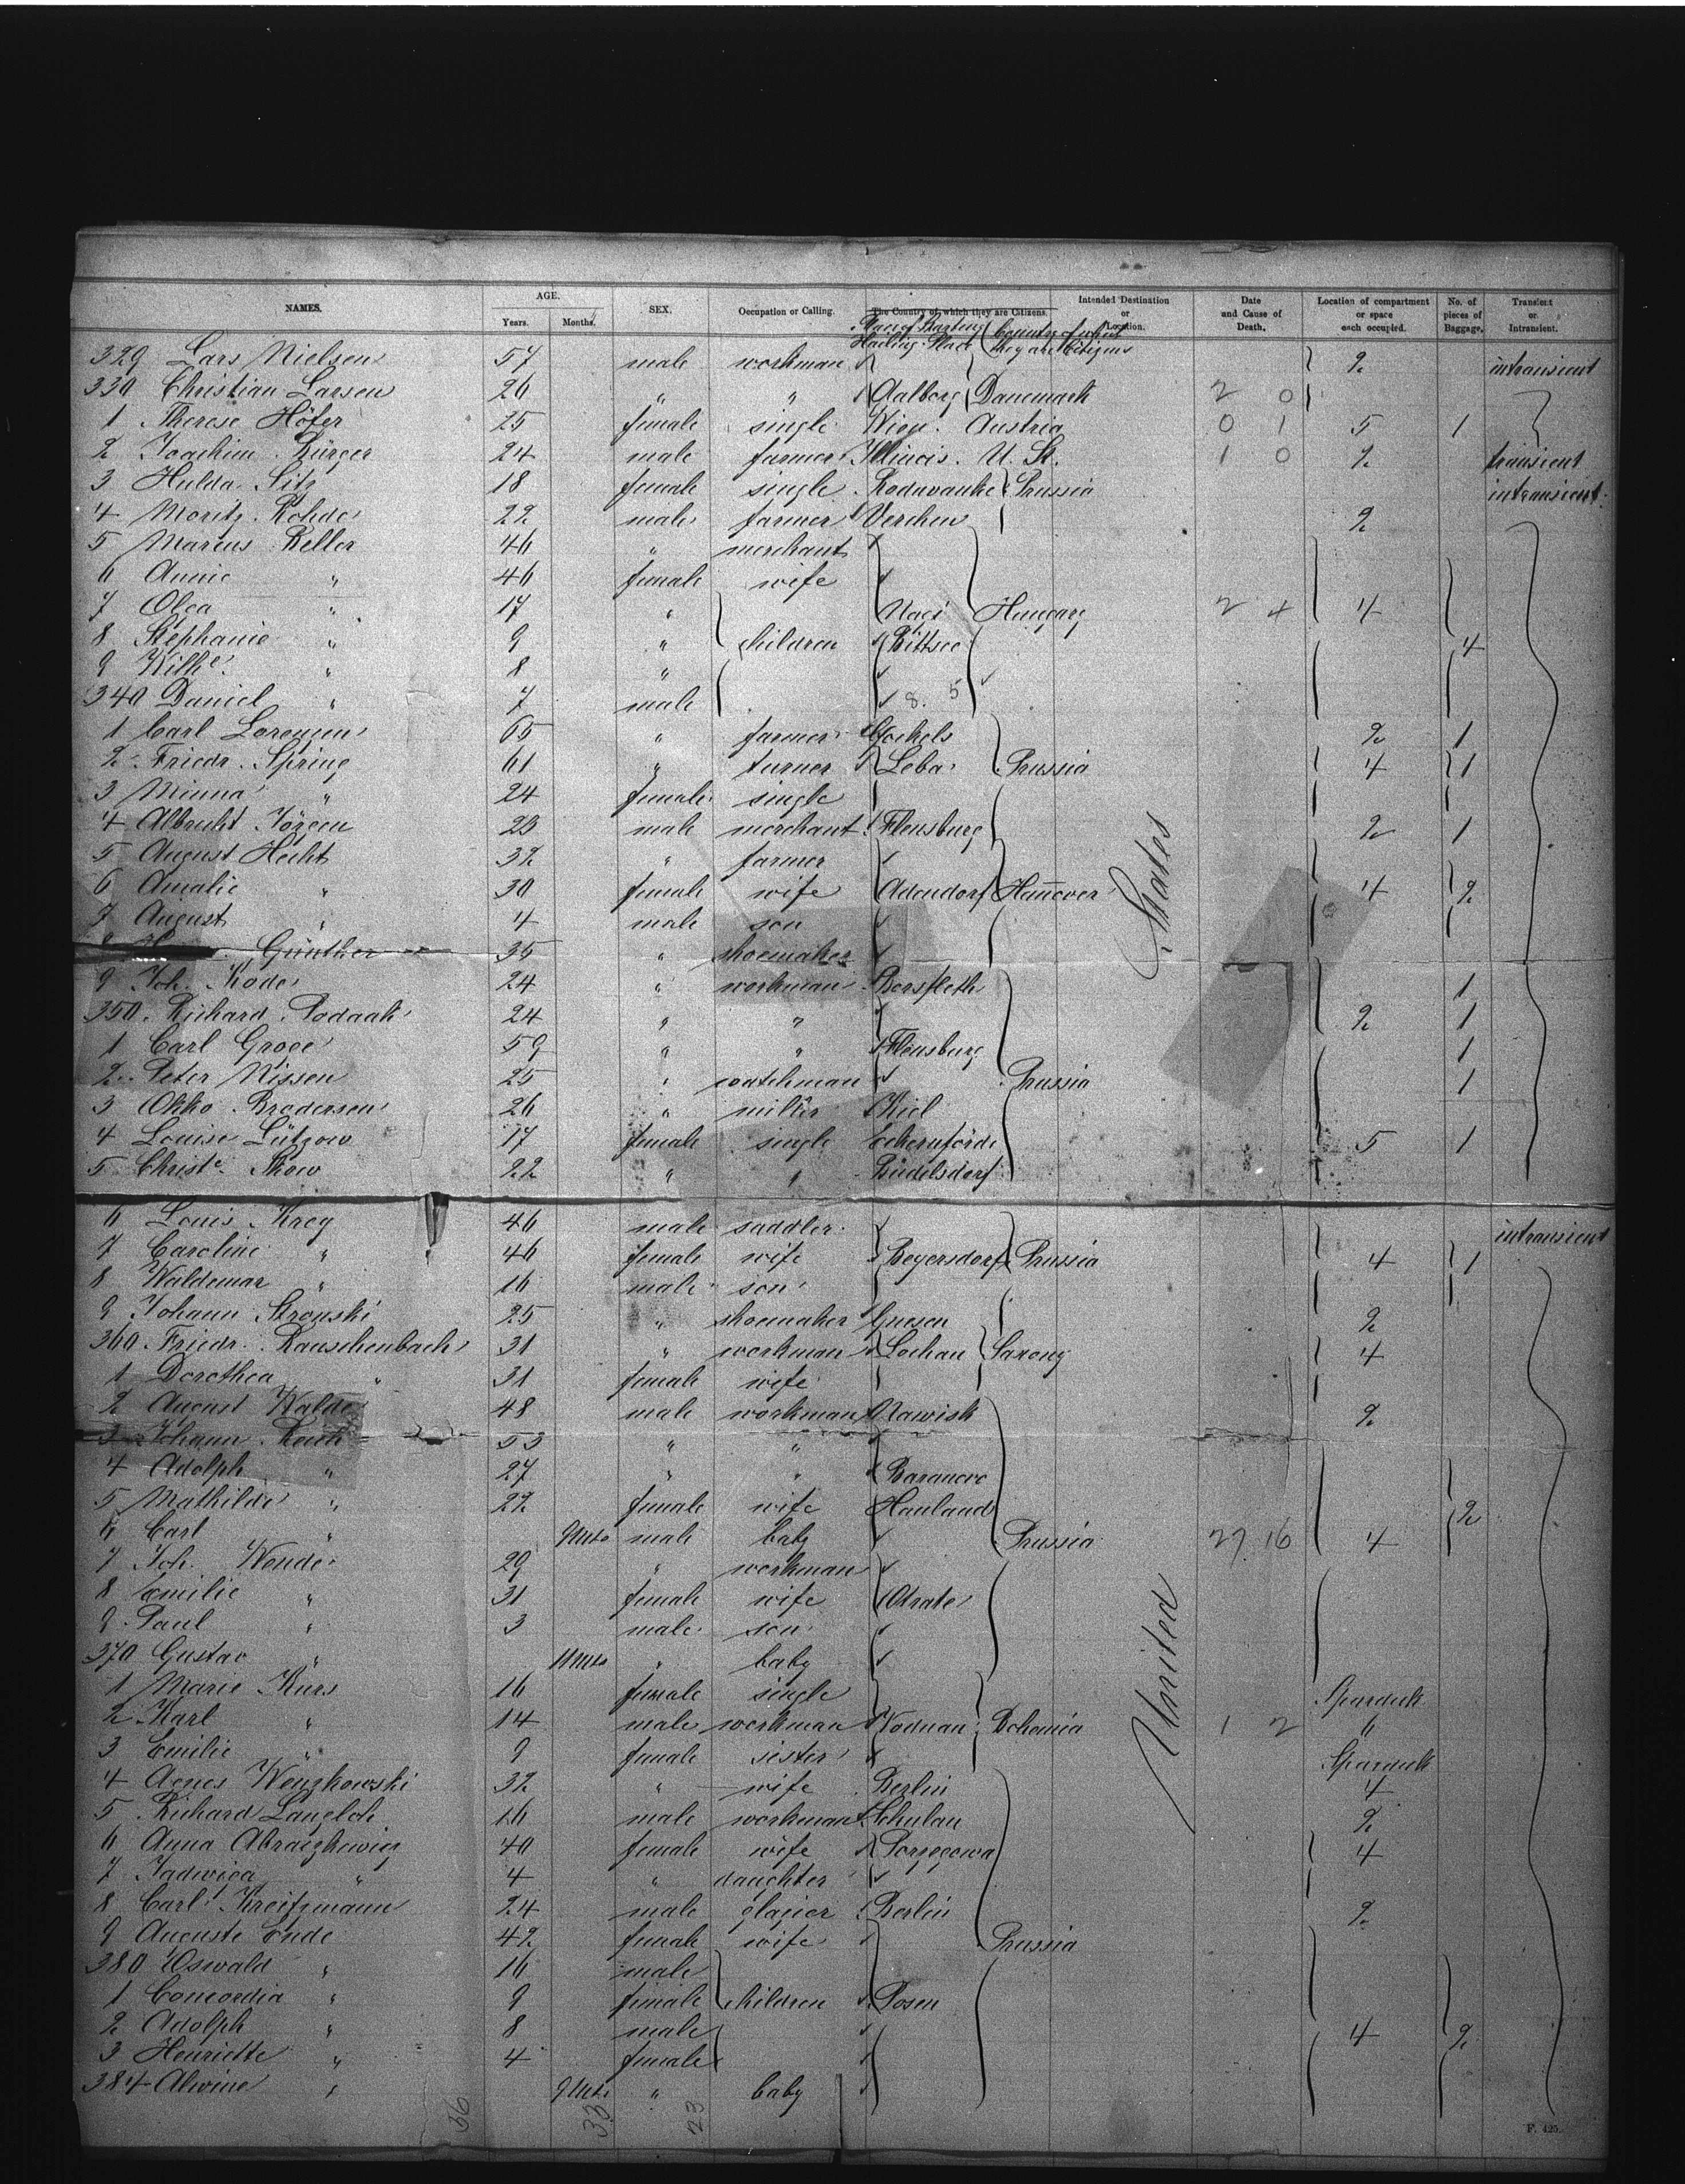 NAMES. AGE. SEX. Occupation or Calling. The Country of which they are Citizens. Intended Destination or Location. Date and Cause of Death. Location of compartment or space each occupied. No. of pieces of Baggage. Transient or Intransient.
Years. Months.
Hailing Place Country of which they are Citizens
329 Lars Nielsen 57 male workman 2 intransient
330 Christian Larsen 26 " " Aalborg Danemark 2 0
1 Therese Höfer 25 female single Wien. Austria 0 1 5 1
2 Joachim Bürger 24 male farmer Illinois. U. St. 1 0 2 transient
3 Hulda Sitz 18 female single Prussia intransient
4 Moritz Rohde 22 male farmer Verchen 2
5 Marcus Keller 46 " merchant
6 Annie " 46 female wife
7 Olga " 17 " Nagi Hungary 2 4 4
8 Stephanie " 9 " children Bittsee 4
9 Wilhe " 8 "
340 Daniel " 7 male 8. 5
1 Carl Lorenzen 65 " farmer Gockels 2 1
2 Friedr. Spring 61 " turner Leba Prussia 4 1
3 Minna " 24 female single
4 Albrecht Jörgen 23 male merchant Flensburg 2 1
5 August Hecht 32 " farmer
6 Amalie " 30 female wife Adendorf Hannover 4 2
7 August " 4 male son
8 Günther 35 " shoemaker
9 Joh. Rode 24 " workman Borsfleth 1
350 Richard Podaak 24 " " 2 1
1 Carl Groee 59 " " Flensburg 1
2 Peter Nissen 25 " watchman Prussia 1
3 Okko Brodersen 26 " Kiel
4 Louise Lützow 17 female single Eckernförde 5 1
5 Christe. Stow 22 " " Büdelsdorf
6 Louis Krey 46 male saddler intransient
7 Caroline " 46 female wife Beyersdorf Prussia 4 1
8 Waldemar " 16 male son
9 Johann Stronski 25 " shoemaker Gnesen 2
360 Friedr. Rauschenbach 31 " workman Lochau Saxony 4
1 Dorothea " 31 female wife
2 August Walde 48 male workman Nawisk 2
3 Johann 53 " "
4 Adolph " 27 " " Baranowo
5 Mathilde " 22 female wife Hauland 2
6 Carl " 9 Mts male baby Prussia 27 16 4
7 Joh. Wende 29 " workman
8 Emilie " 31 female wife Otrate
9 Paul " 3 male son
370 Gustav " 11 Mts " baby
1 Marie Kurs 16 female single Spardeck
2 Karl " 14 male workman Wodnan Bohemia 1 2 "
3 Emilie " 9 female sister Spardeck
4 Agnes Wenzkowski 32 " wife Berlin 4
5 Richard Langloh 16 male workman Schulau 2
6 Anna Abraczkewicz 40 female wife 4
7 Jadwiga " 4 " daughter
8 Carl Kreitzmann 24 male glazier Berlin 2
9 Auguste Ende 42 female wife Prussia
380 Oswald " 16 male
1 Concordia " 9 female children Posen
2 Adolph " 8 male 4 2
3 Henriette " 4 female
384 Alwine " 9 Mts " baby
United States
36 33 23
F. 425.